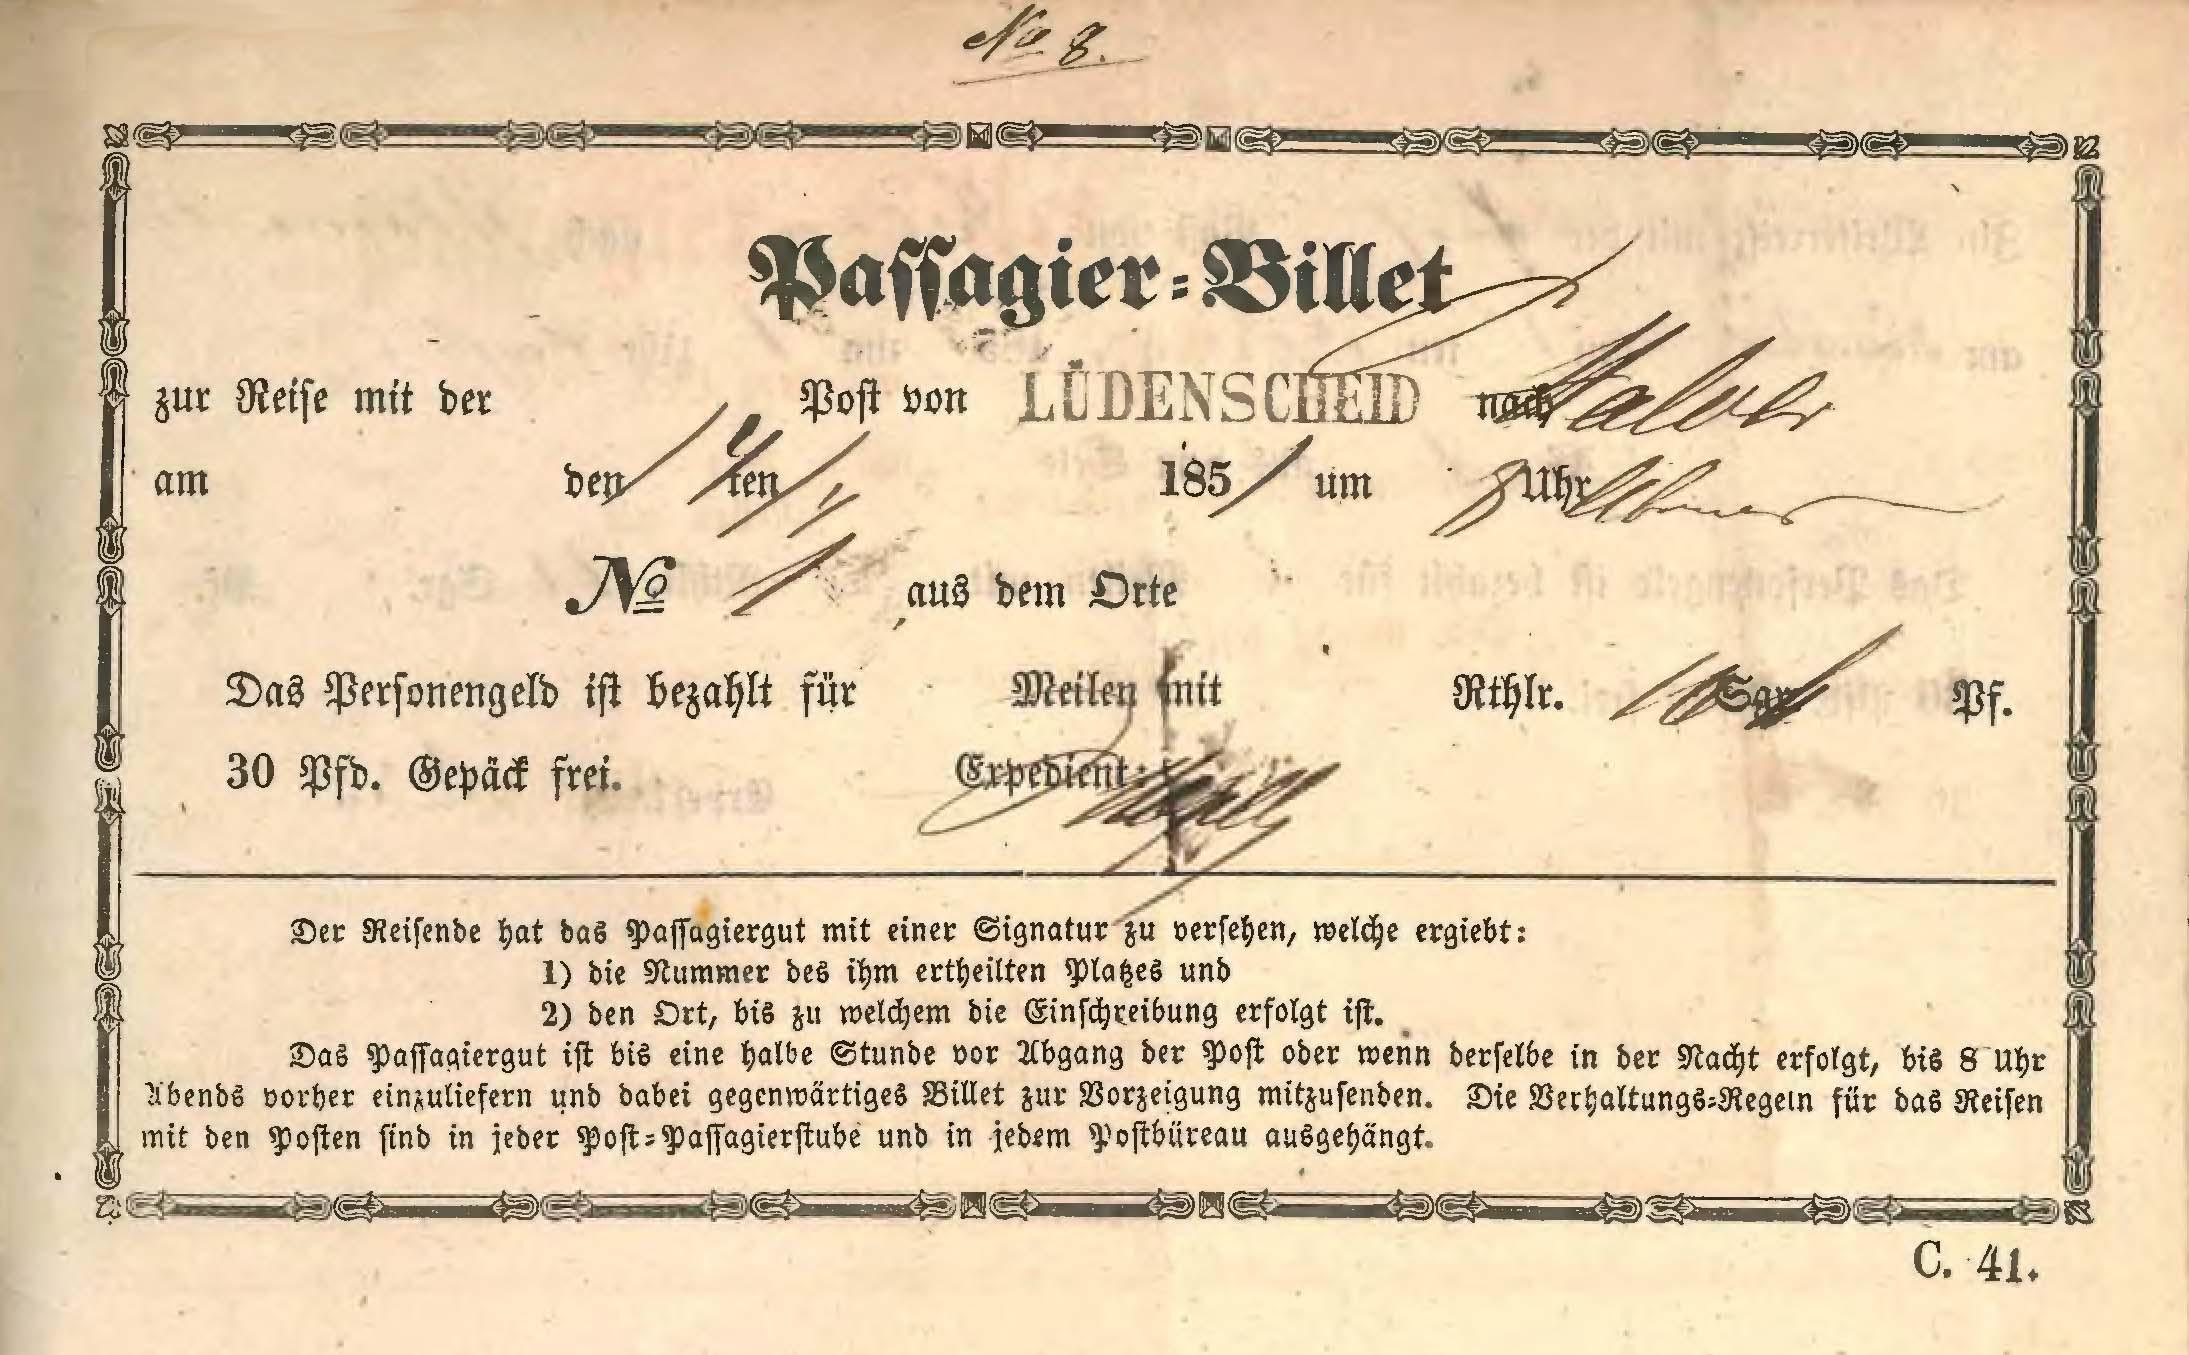 No 8.
Passagier-Billet
zur Reise mit der Post von LÜDENSCHEID nach Halver
am den ten 1851 um 8 Uhr
No 1 aus dem Orte
Das Personengeld ist bezahlt für Meilen mit Rthlr. 10 Sgr Pf.
30 Pfd. Gepäck frei. Expedient:
Der Reisende hat das Passagiergut mit einer Signatur zu versehen, welche ergiebt:
1) die Nummer des ihm ertheilten Platzes und
2) den Ort, bis zu welchem die Einschreibung erfolgt ist.
Das Passagiergut ist bis eine halbe Stunde vor Abgang der Post oder wenn derselbe in der Nacht erfolgt, bis 8 Uhr
Abends vorher einzuliefern und dabei gegenwärtiges Billet zur Vorzeigung mitzusenden. Die Verhaltungs-Regeln für das Reisen
mit den Posten sind in jeder Post-Passagierstube und in jedem Postbüreau ausgehängt.
C. 41.